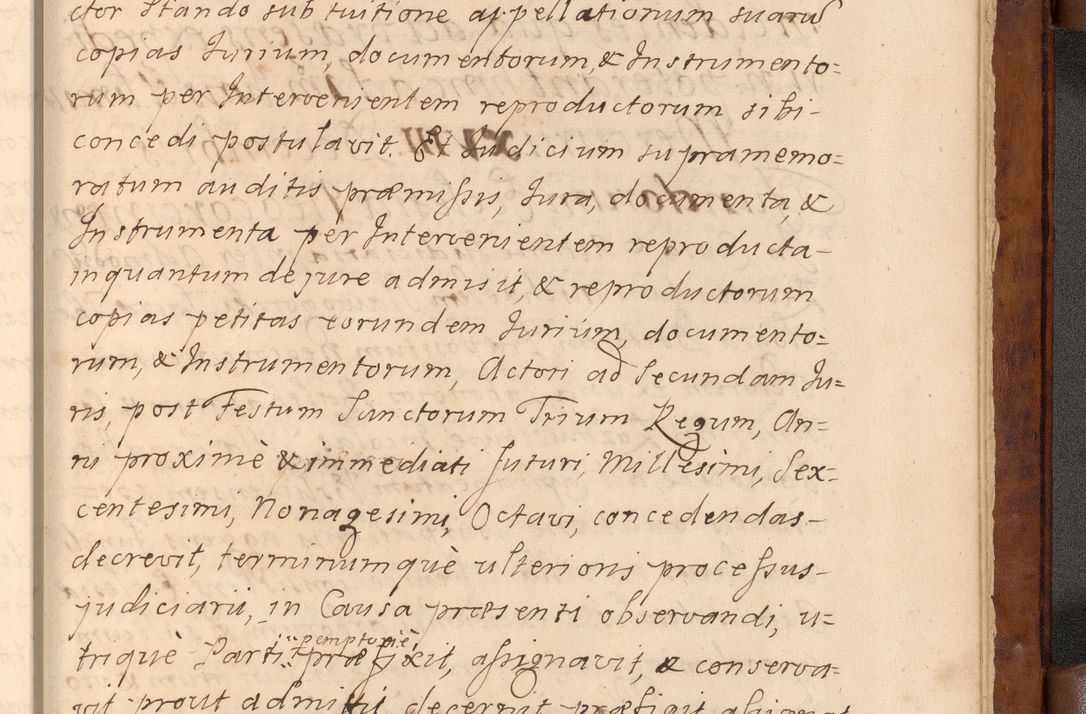 ctor stando sub tuitione appellationum suarũ
copias Jurium, documentorum, & Instrumento=
rum per Intervenientem reproductorum sibi-
concedi postulavit. Et Judicium supramemo=
ratum auditis præmißis, Jura, documenta, &
Instrumenta per Intervenientem reproducta-
inquantum de jure admisit, & reproductorum
copias petitas eorundem Jurium, documento=
rum, & Instrumentorum, Actori ad Secundam Ju=
ris, post Festum Sanctorum Trium Regum, An=
ni proximè & immediati futuri, Millesimi, Sex-
centesimi, Nonagesimi, Octavi, concedendas-
decrevit, terminumquè ulterioris proceßus-
judiciarii, in Causa præsenti observandi, u=
triquè Parti peremptoriè præfixit, aßignavit, & conserva=
vit prout admittit decernit præfigit aßignat